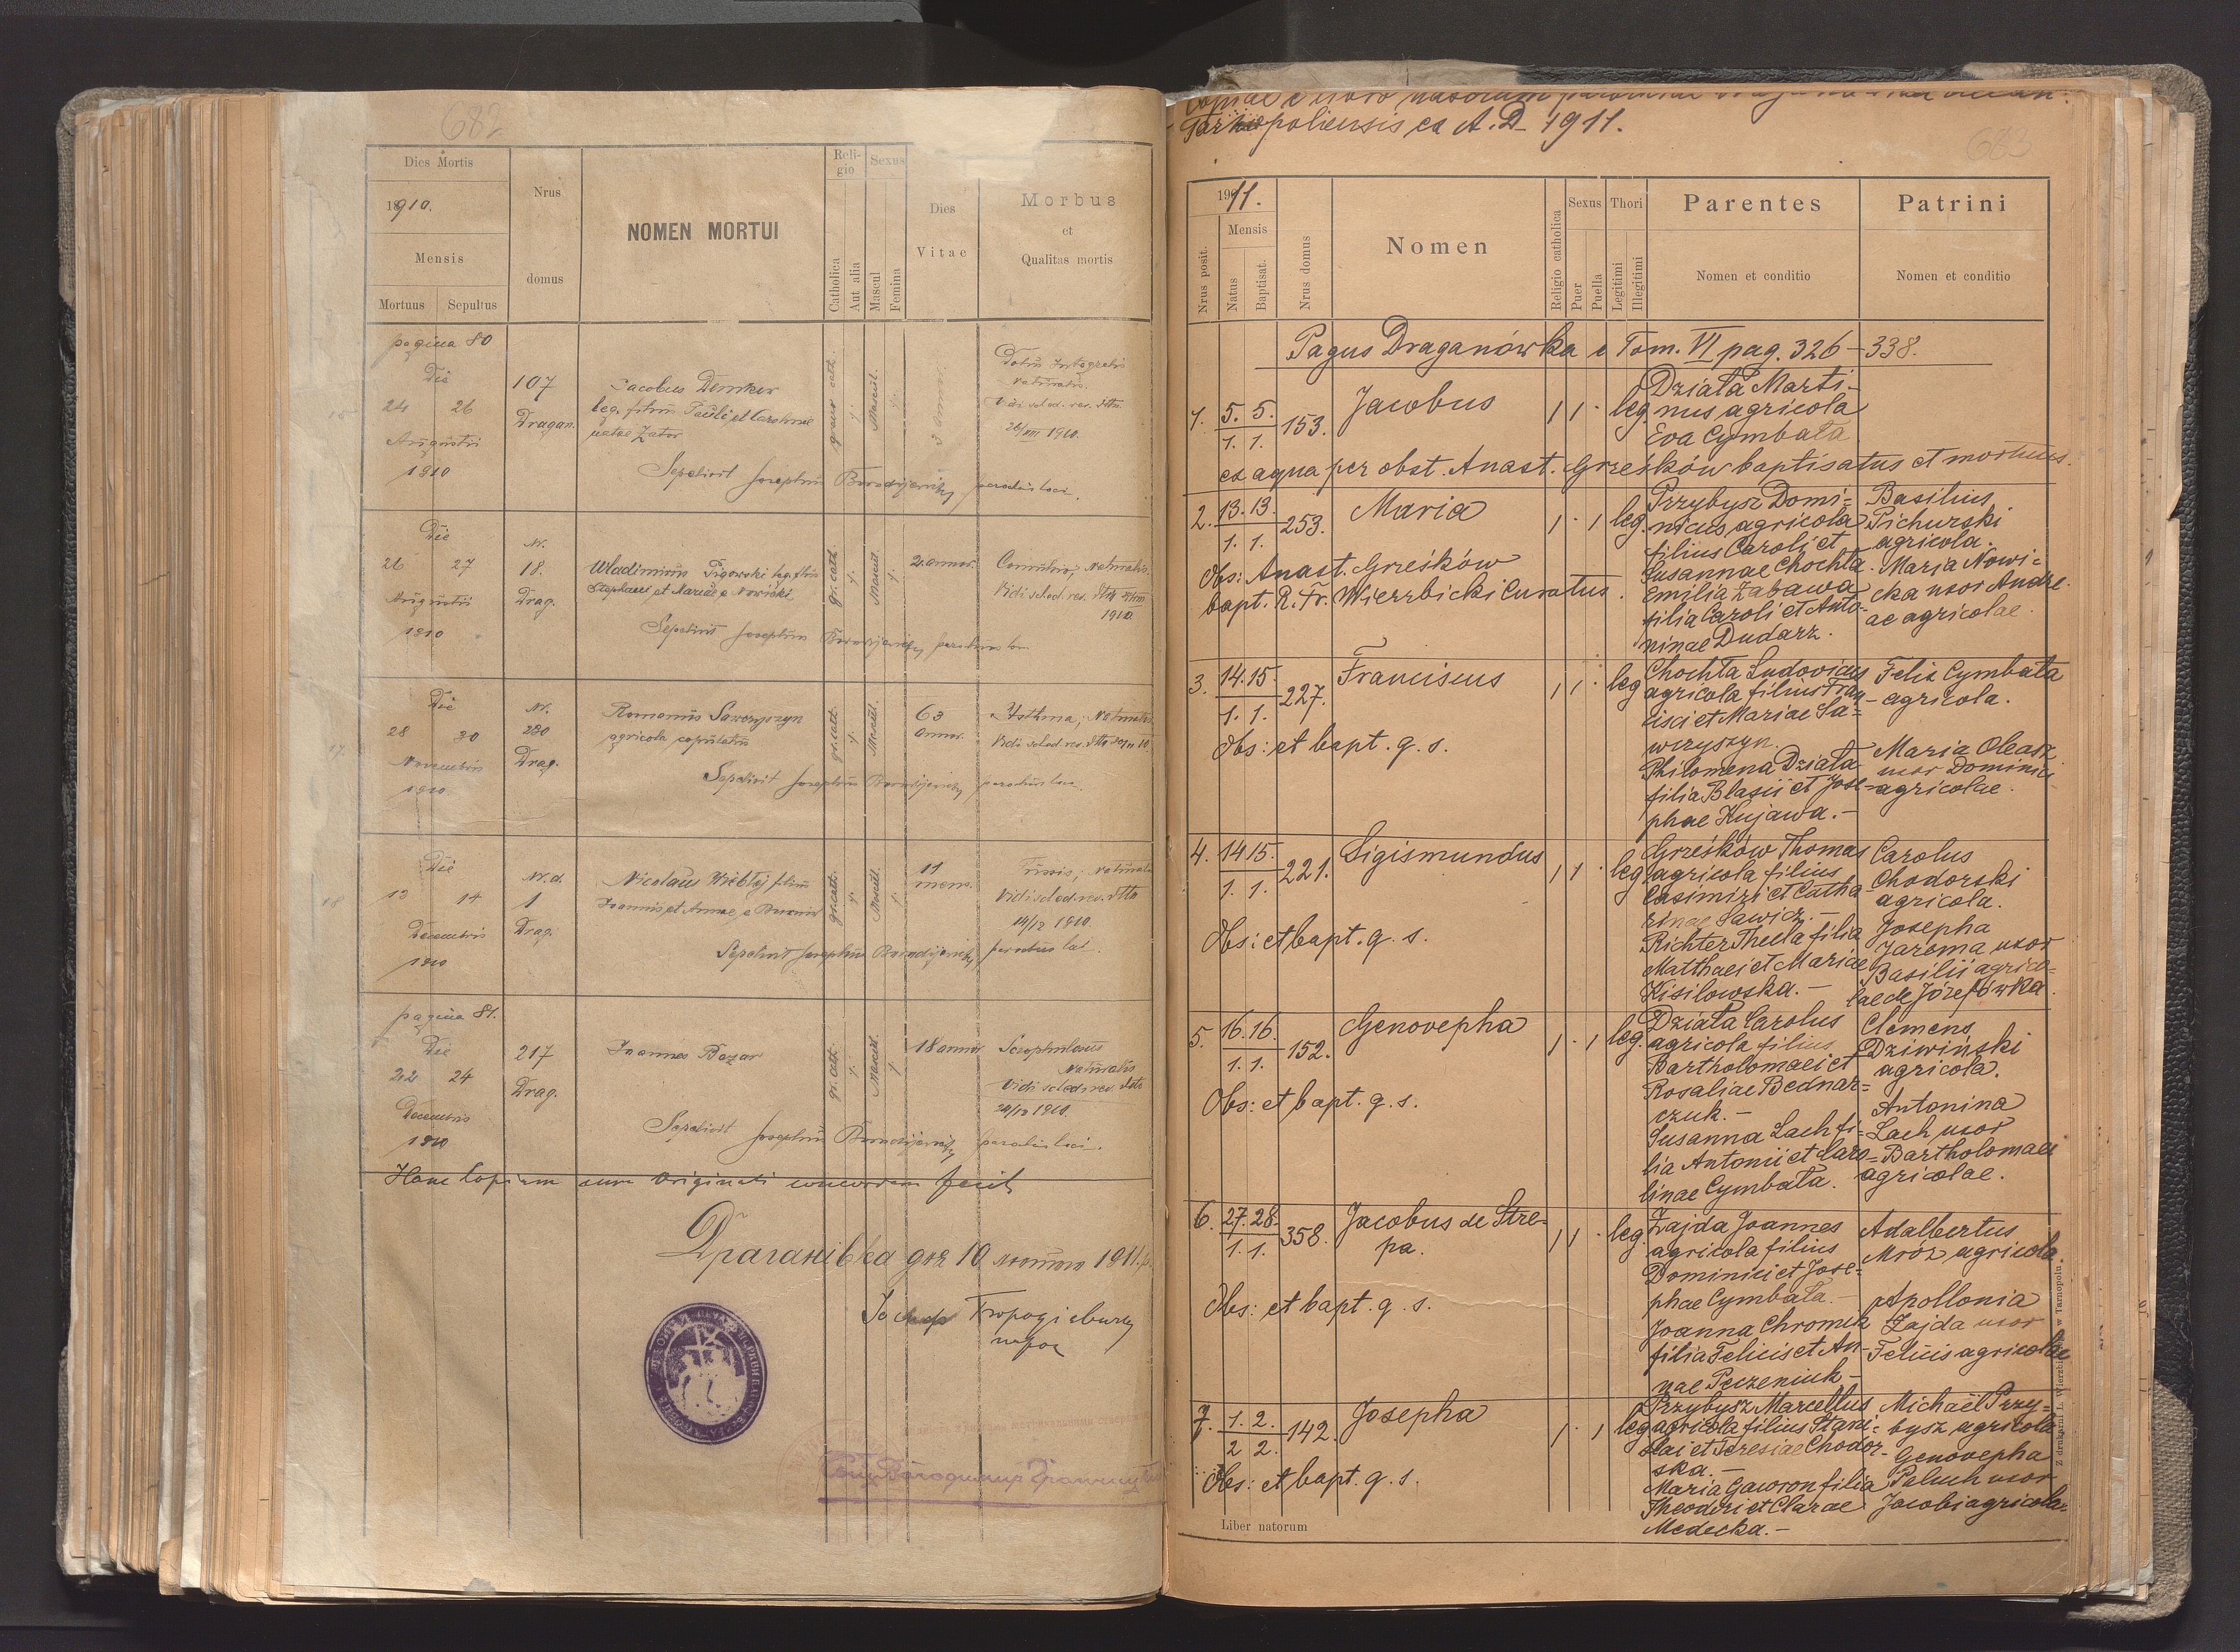 682
Dies Mortis
1910.
Mensis
Mortuus Sepultus
Nrus
domus
NOMEN MORTUI
Religio
Catholica
Aut alia
Sexus
Mascul
Femina
Dies
Vitae
Morbus
et
Qualitas mortis
pagina 80
Die
24 26
Augusti
1910
107
Dragan.
Jacobus Demkow
leg. filius Pauli et Carolinae
natae Zator
graeco cath.
Mascul.
3 annor.
naturalis.
Vidi sched. rev. dtto
26/VIII 1910.
Sepelivit Josephus parochus loci.
Die
26 27
Augusti
1910
Nr.
18.
Drag.
Wladimirus leg. filius
Stephani et Mariae a Nowicki
gr. cath.
Mascul.
2. annor.
naturalis.
Vidi sched. rev. dtto
1910.
Sepelivit Josephus parochus loci
17.
Die
28 30
Novembris
1910
Nr.
280
Drag.
Romanus Sawczyszyn
agricola copulatus
gr. cath.
Mascul.
63
annor.
Asthma, naturalis
Vidi sched. rev. dtto
Sepelivit Josephus parochus loci.
18
Die
13 14
Decembris
1910
Nr. d.
1
Drag.
Nicolaus filius
Joannis et Annae a
gr. cath.
Mascul.
11
mens.
Tussis, naturalis
Vidi sched. rev. dtto
14/12 1910.
Sepelivit Josephus parochus loci.
pagina 81.
Die
22 24
Decembris
1910
217
Drag.
Joannes Bazar
gr. cath.
Mascul.
18 annor
naturalis
Vidi sched. rev. dtto
1910.
Sepelivit Josephus parochus loci.
Hanc Copiam cum Originali concordem fecit
Драганівка дня 10 лютого 1911 р.
Йосиф
парох
Copiae e libro natorum
Tarnopoliensis ex A. D. 1911.
683
1911.
Nrus posit.
Mensis
Natus
Baptisat.
Nrus domus
Nomen
Religio catholica
Sexus
Puer
Puella
Thori
Legitimi
Illegitimi
Parentes
Nomen et conditio
Patrini
Nomen et conditio
Pagus Draganówka e Tom. VI pag. 326-338.
1. 5. 5. 153. Jacobus 1 1 · leg.
1. 1.
Działa Marti-
nus agricola
Eva Cymbała
ex aqua per obst. Anast. Grześków baptisatus et mortuus.
2. 13. 13. 253. Maria 1 · 1 leg.
1. 1.
Przybysz Domi=
nicus agricola
filius Caroli et
Susannae Chochła.
Emilia Zabawa
filia Caroli et Anto-
ninae Dudarz.
Basilius
Pichurski
agricola.
Maria Nowi=
cka uxor Andre
ae agricolae.
Obs: Anast. Grześków
bapt. R. Fr. Wierzbicki Curatus.
3. 14. 15. 227. Franciscus 1 1 · leg
1. 1.
Chochła Ludovicus
agricola filius Fran
cisci et Mariae Sa=
wczyszyn.
Philomena Działa
filia Blasii et Jose-
phae Kujawa.-
Felix Cymbała
agricola.
Maria Oleasz
uxor Dominici
agricolae.
Obs: et bapt. q. s.
4. 14 15. 221. Sigismundus 1 1 · leg
1. 1.
Grześków Thomas
agricola filius
Casimiri et Catha
rinae Sawicz.-
Richter Thecla filia
Matthaei et Mariae
Kisilowska.-
Carolus
Chodorski
agricola.
Josepha
Jarema uxor
Basilii agrico=
lae de Józefówka.
Obs: et bapt. q. s.
5. 16. 16. 152. Genovepha 1 · 1 leg.
1. 1.
Działa Carolus
agricola filius
Bartholomaei et
Rosaliae Bednar=
czuk.-
Susanna Lach fi=
lia Antonii et Caro=
linae Cymbała.
Clemens
Dziwiński
agricola.
Antonina
Lach uxor
Bartholomaei
agricolae.
Obs: et bapt. q. s.
6. 27. 28. 358. Jacobus de Stre-
pa. 1 1 · leg.
1. 1.
Zajda Joannes
agricola filius
Dominici et Jose=
phae Cymbała.-
Joanna Chromik
filia Felicis et An-
nae Peczeniuk-
Adalbertus
Mróz agricola
Apollonia
Zajda uxor
Felicis agricolae
Obs: et bapt. q. s.
7. 1. 2. 142. Josepha 1 · 1 leg
2 2.
Przybysz Marcellus
agricola filius Stani=
slai et Teresiae Chodor-
ska.-
Maria Gawron filia
Theodori et Clarae
Medecka.-
Michaël Przy=
bysz agricola
Genovepha
Paluch uxor
Jacobi agricolae
Obs: et bapt. q. s.
Liber natorum